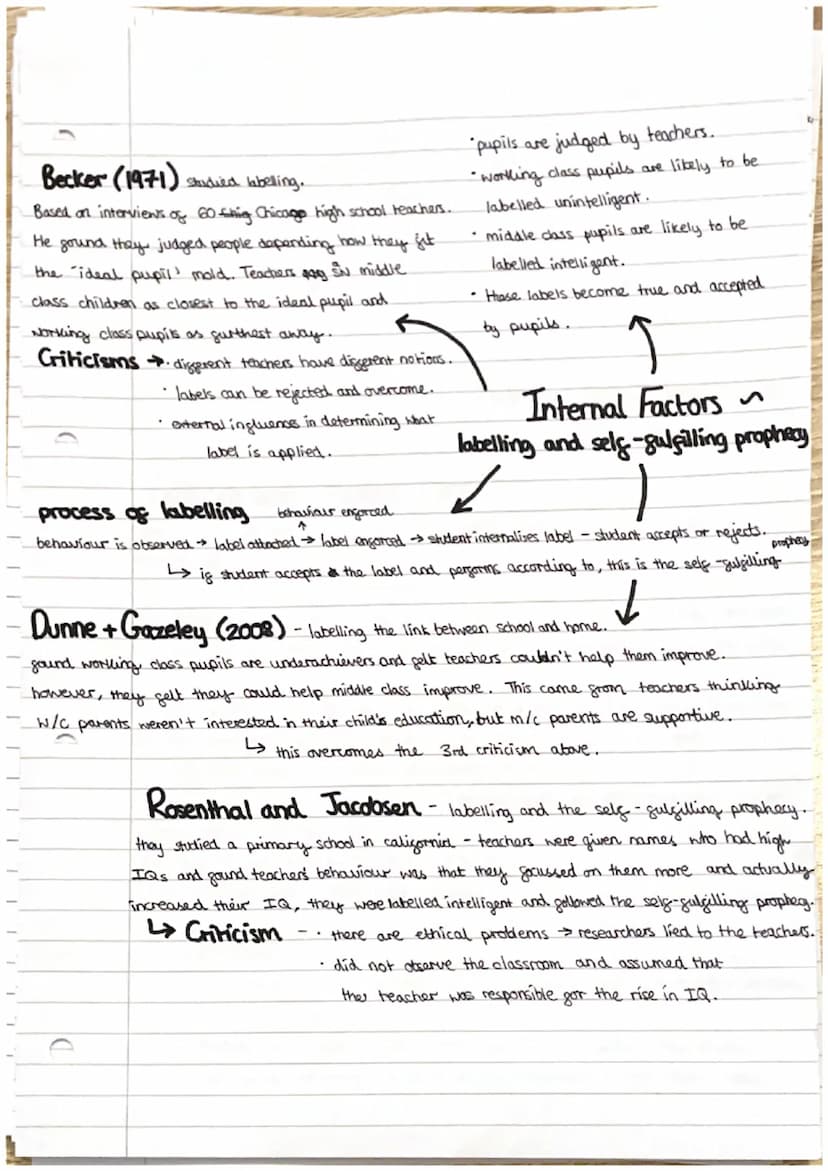 Becker (1971) studied labelling.
Based on interviews of 60 Chicago high school teachers.
He found they judged people depending how they fit
the "ideal pupil' mold. Teachers saw middle
class children as closest to the ideal pupil and
working class pupils as furthest away.
Criticisms → · different teachers have different notions.
· labels can be rejected and overcome.
· external influence in determining what
label is applied.
· pupils are judged by teachers.
· working class pupils are likely to be
labelled unintelligent.
· middle class pupils are likely to be
labelled intelligent.
· these labels become true and accepted
by pupils.
Internal Factors ~
labelling and self-fulfilling prophecy
process of labelling
behaviour enforced
↑
behaviour is observed → label attached → label enforced → student internalises label - student accepts or rejects.
↳ if student accepts the label and performs according to, this is the self-fulfilling prophecy
Dunne + Gazeley (2008) - labelling the link between school and home.
found working class pupils are underachievers and felt teachers couldn't help them improve.
however, they felt they could help middle class improve. This came from teachers thinking
W/C parents weren't interested in their child's education, but m/c parents are supportive.
↳ this overcomes the 3rd criticism above.
Rosenthal and Jacobsen - labelling and the self-fulfilling prophecy.
they studied a primary school in california - teachers were given names who had high
IQs and found teachers behaviour was that they focussed on them more and actually
increased their IQ, they were labelled intelligent and followed the self-fulfilling prophecy.
↳ Criticism - · there are ethical problems → researchers lied to the teachers.
· did not observe the classroom and assumed that
the teacher was responsible for the rise in IQ.